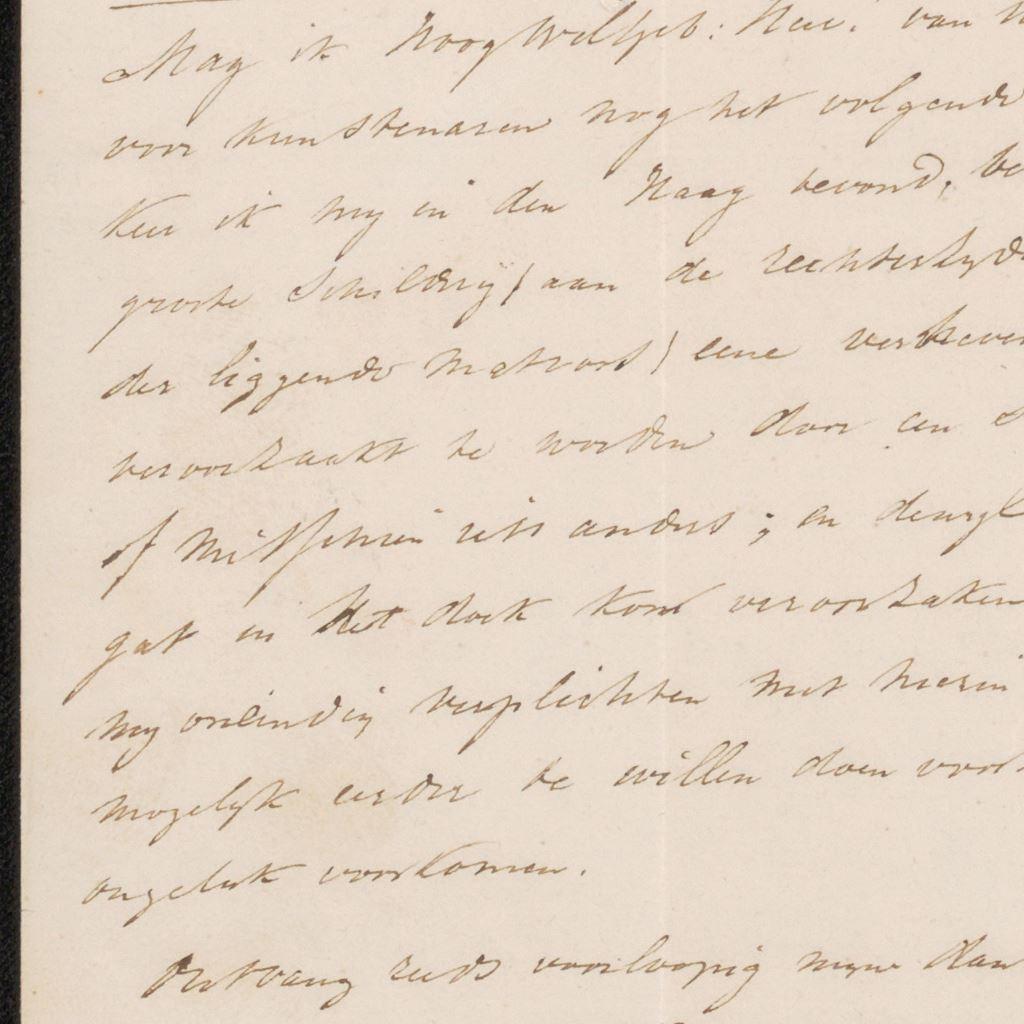 Mag ik HoogWelGeb: Heer! van
voor kunstenaren nog het volgende
keer ik my in den Haag bevond, be
groote Schildery (aan de rechterzyde
der liggende matroos) eene verheven
veroorzaakt te worden door een
of misschien iets anders; en dewyl
gat in het doek kon veroorzaken
my oneindig verplichten met hierin
mogelyk eerder te willen doen voor
ongeluk voorkomen.
Ontvang reeds voorloopig myne dan